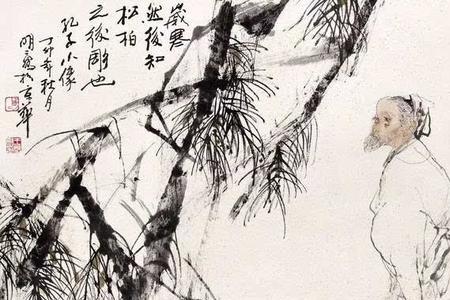 歲寒
然後知
松柏
之後彫也
孔子小像
丁卯年秋月
明於京華